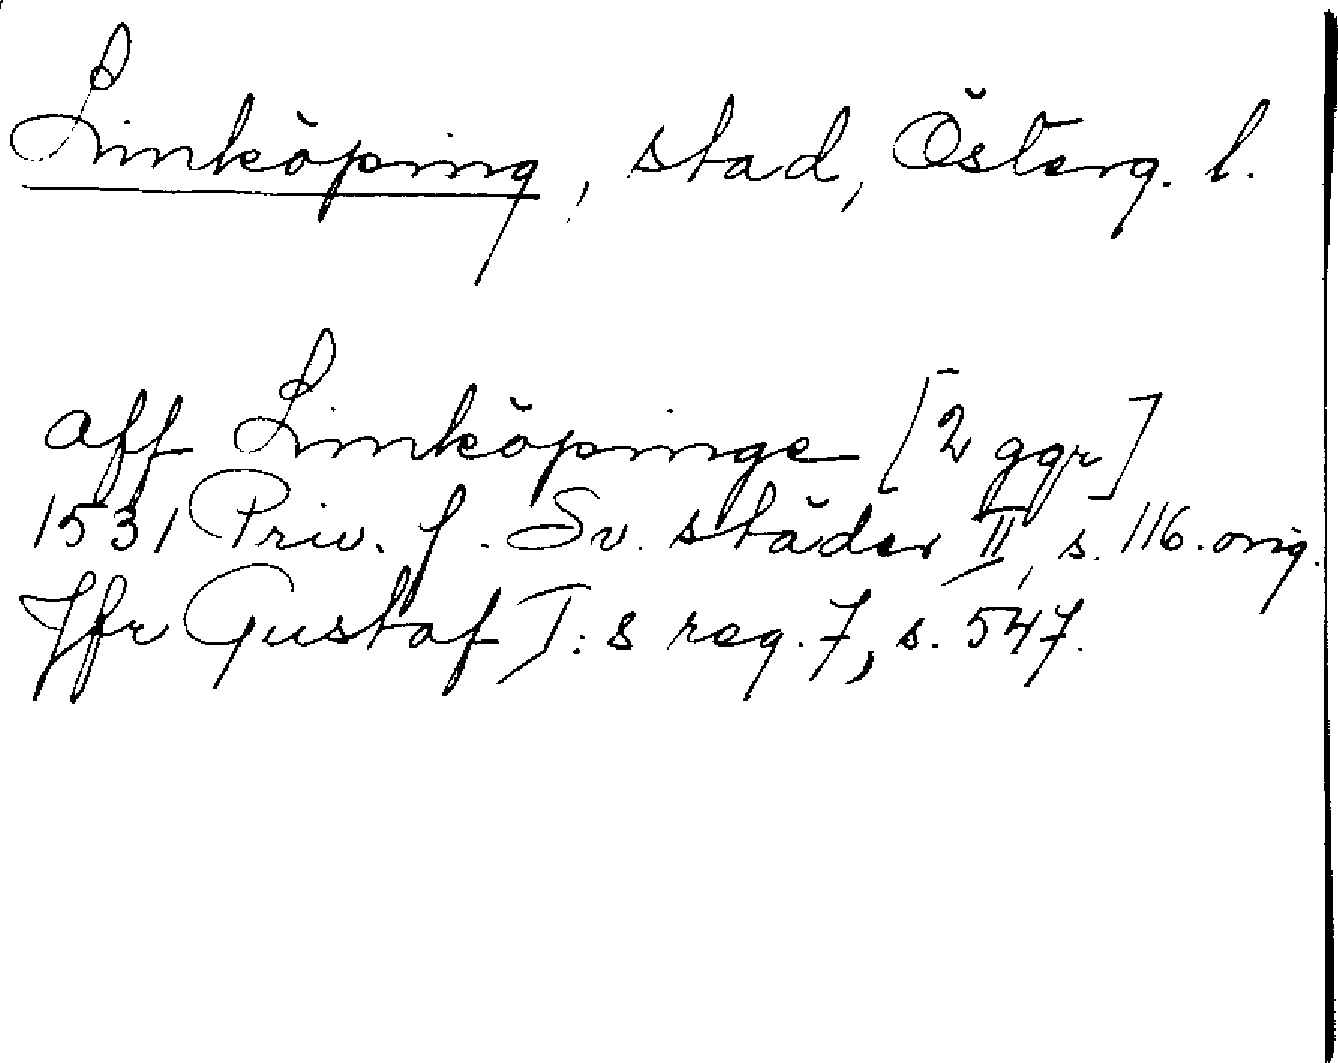 Linköping, stad, Österg. l.
aff Linköpinge [2 ggr]
1531 Priv. f. Sv. städer II, s. 116. orig.
Jfr Gustaf I:s reg. 7, s. 547.